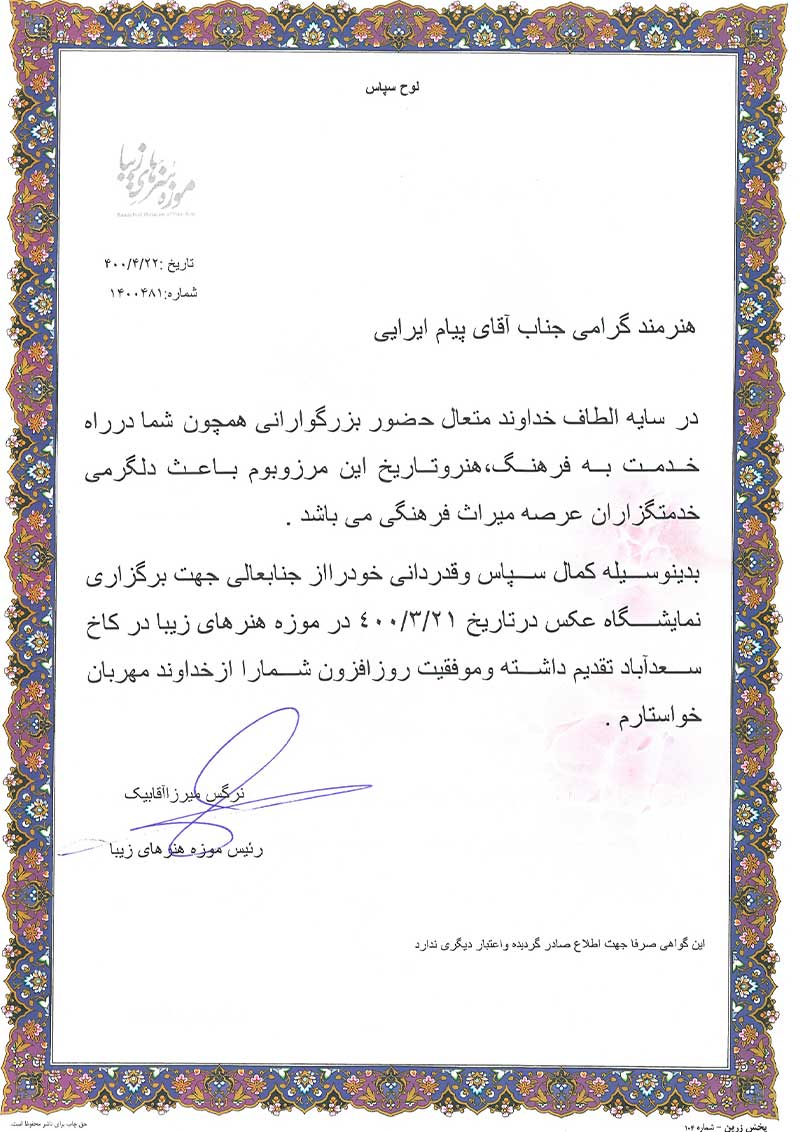 لوح سپاس
موزه هنرهای زیبا
تاریخ :۴۰۰/۴/۲۲
شماره:۱۴۰۰۴۸۱
هنرمند گرامی جناب آقای پیام ایرایی
در سایه الطاف خداوند متعال حضور بزرگوارانی همچون شما درراه
خدمت به فرهنگ،هنروتاریخ این مرزوبوم باعث دلگرمی
خدمتگزاران عرصه میراث فرهنگی می باشد .
بدینوسیله کمال سپاس وقدردانی خودرااز جنابعالی جهت برگزاری
نمایشگاه عکس درتاریخ ۴۰۰/۳/۲۱ در موزه هنرهای زیبا در کاخ
سعدآباد تقدیم داشته وموفقیت روزافزون شمارا ازخداوند مهربان
خواستارم .
نرگس میرزاآقابیک
رئیس موزه هنرهای زیبا
این گواهی صرفا جهت اطلاع صادر گردیده واعتبار دیگری ندارد
پخش زرین - شماره ۱۰۴
حق چاپ برای ناشر محفوظ است.